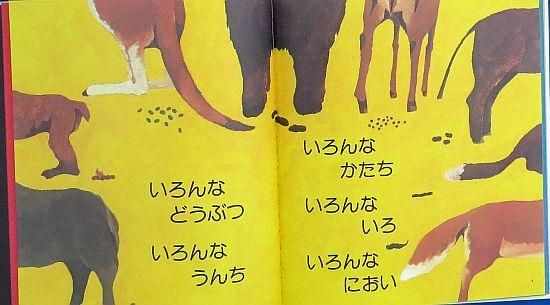 いろんな
どうぶつ
いろんな
うんち
いろんな
かたち
いろんな
いろ
いろんな
におい